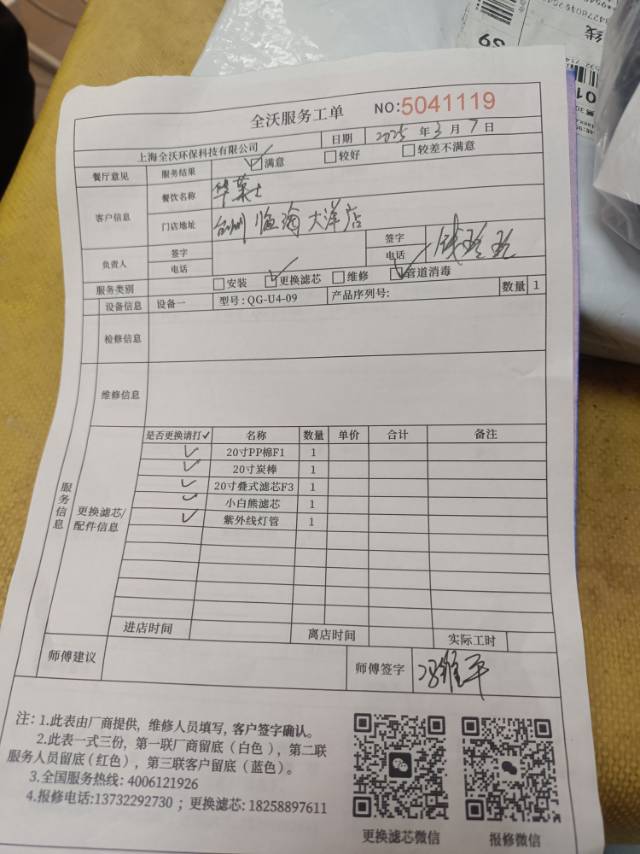 全沃服务工单 NO:5041119
上海全沃环保科技有限公司 日期 2025 年 3 月 7 日
餐厅意见 服务结果 ☑满意 □较好 □较差不满意
客户信息 餐饮名称 华莱士
门店地址 台州 临海大洋店
负责人 签字 签字
电话 电话
服务类别 □安装 ☑更换滤芯 □维修 ☑管道消毒
设备信息 设备一 型号:QG-U4-09 产品序列号: 数量 1
检修信息
维修信息
服务信息 更换滤芯/配件信息
是否更换请打✓ 名称 数量 单价 合计 备注
✓ 20寸PP棉F1 1
✓ 20寸炭棒 1
✓ 20寸叠式滤芯F3 1
✓ 小白熊滤芯 1
✓ 紫外线灯管 1
进店时间 离店时间 实际工时
师傅建议 师傅签字 冯维平
注：1.此表由厂商提供，维修人员填写，客户签字确认。
2.此表一式三份，第一联厂商留底（白色），第二联
服务人员留底(红色)，第三联客户留底（蓝色）。
3.全国服务热线: 4006121926
4.报修电话:13732292730 ；更换滤芯: 18258897611
更换滤芯微信 报修微信